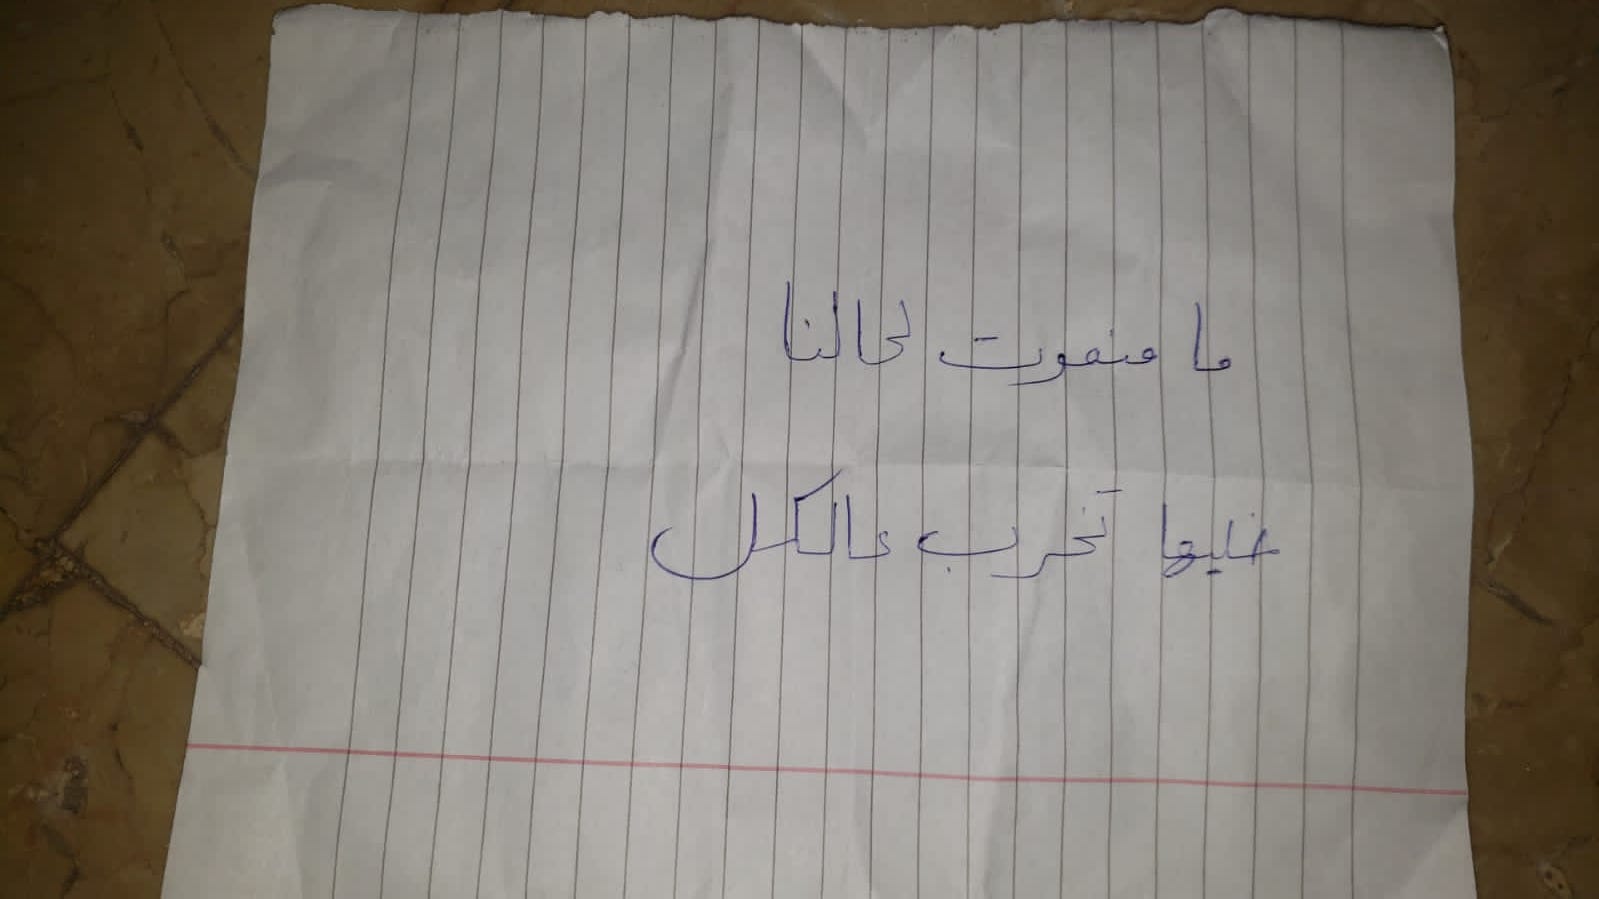 ما منفوت لحالنا
خليها تخرب عالكل